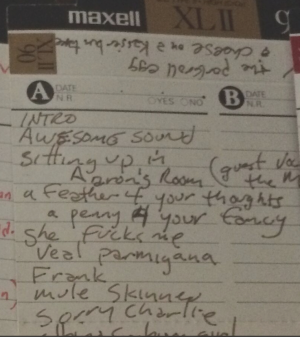 maxell XLII 9
XLII
90
& cheese on a Kaiser bun
the porkroll egg
A DATE
N.R. YES NO
B DATE
N.R.
INTRO
AWESOME SOUND
Sitting up in
Aaron's Room (guest voc
the M
a feather 4 your thoughts
a penny 4 your fancy
She Fucks me
Veal Parmigana
Frank
Mule Skinner
Sorry Charlie